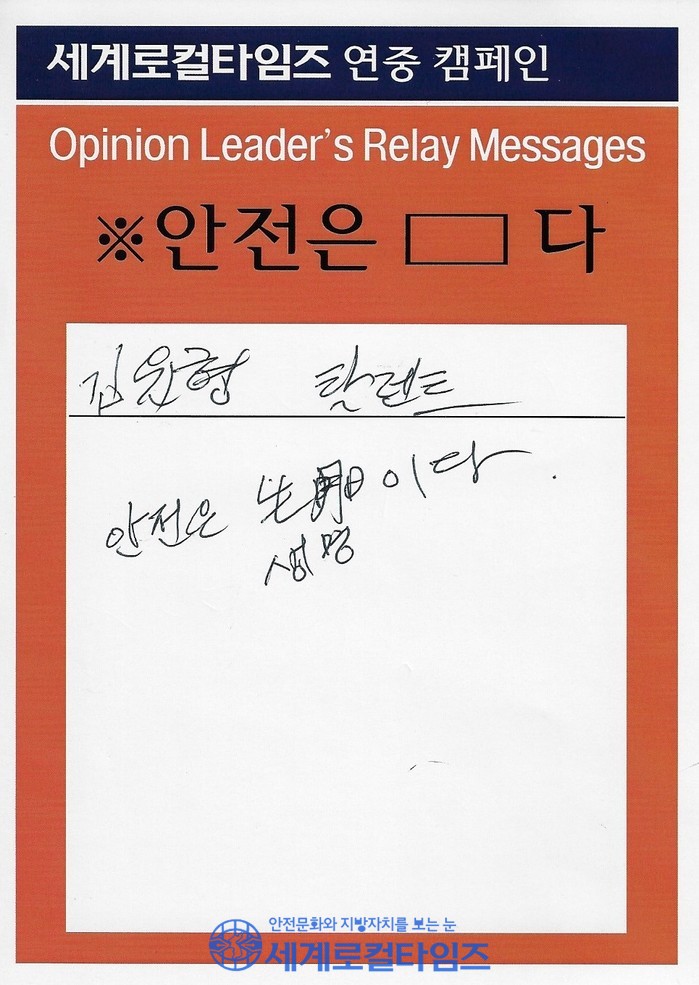 세계로컬타임즈 연중 캠페인
Opinion Leader's Relay Messages
※안전은 □ 다
김윤형 탈렌트
안전은 生明이다.
생명
안전문화와 지방자치를 보는 눈
세계로컬타임즈